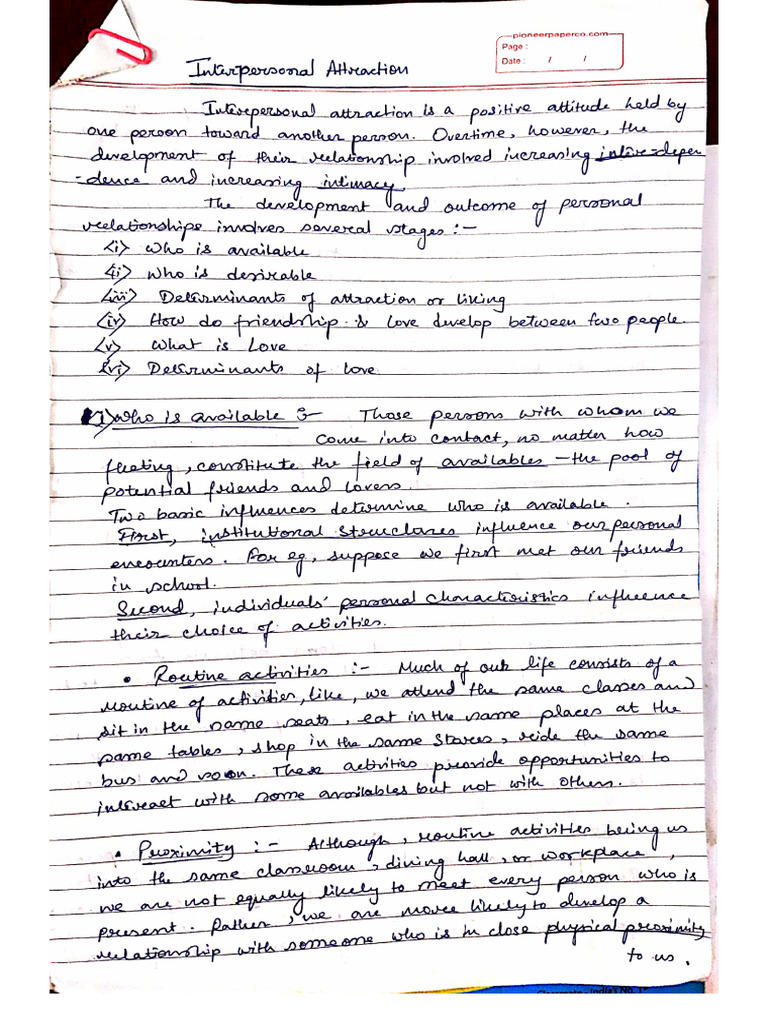 pioneerpaperco.com
Page :
Date : / /
Interpersonal Attraction
Interpersonal attraction is a positive attitude held by
one person toward another person. Overtime, however, the
development of their relationship involved increasing inter-depen
-dence and increasing intimacy.
The development and outcome of personal
relationships involves several stages :-
<i> Who is available
<ii> Who is desirable
<iii> Determinants of attraction or liking
<iv> How do friendship & Love develop between two people.
<v> What is Love
<vi> Determinants of love
<i> Who is available :- Those persons with whom we
come into contact, no matter how
fleeting, constitute the field of availables – the pool of
potential friends and lovers.
Two basic influences determine who is available.
First, institutional structures influence our personal
encounters. For eg, suppose we first met our friends
in school.
Second, individuals' personal characteristics influence
their choice of activities.
• Routine activities :- Much of our life consists of a
routine of activities, like, we attend the same classes and
sit in the same seats, eat in the same places at the
same tables, shop in the same stores, ride the same
bus and so on. These activities provide opportunities to
interact with some availables but not with others.
• Proximity :- Although, routine activities being us
into the same classroom, dining hall, or workplace,
we are not equally likely to meet every person who is
present. Rather, we are more likely to develop a
relationship with someone who is in close physical proximity
to us.